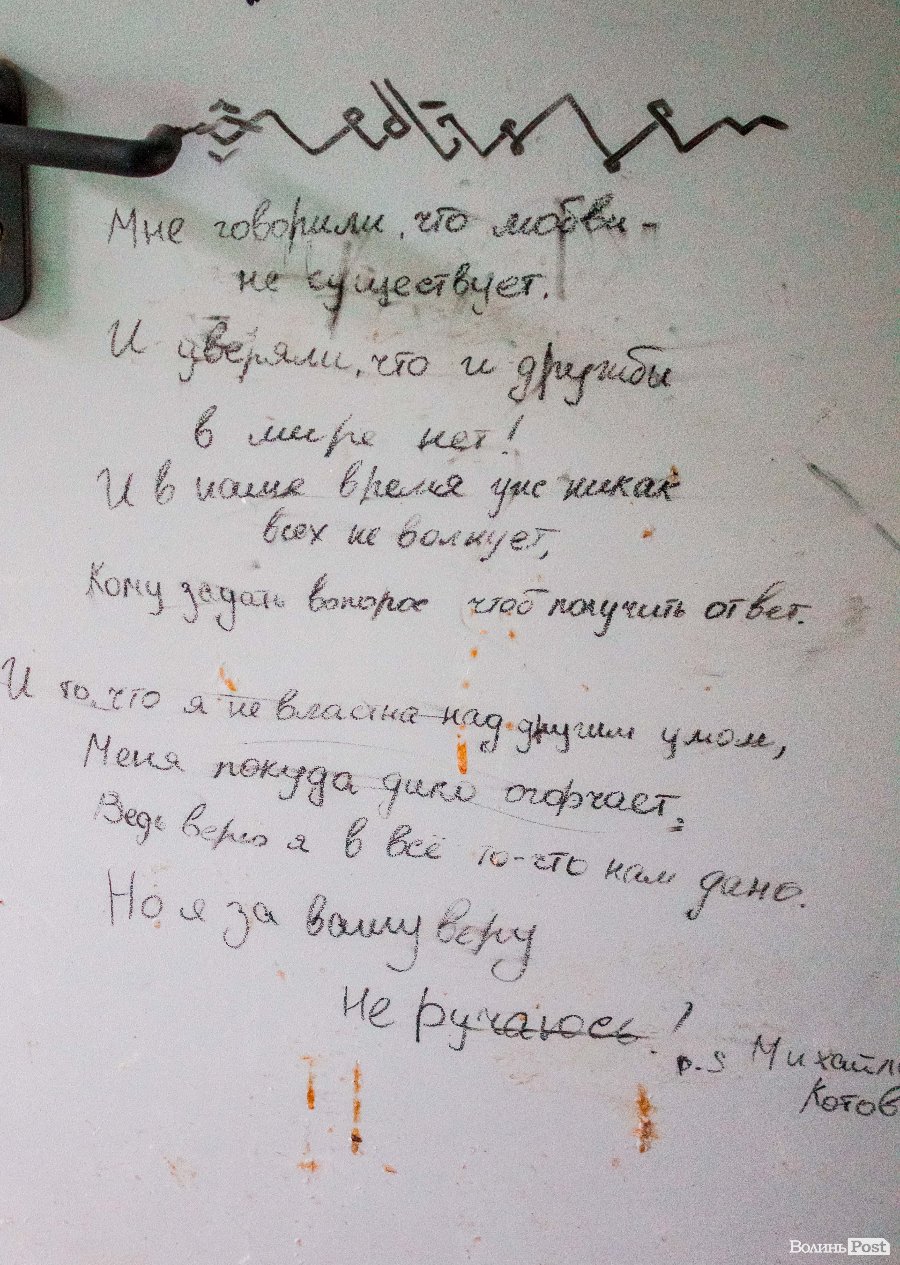 Мне говорили, что любви -
не существует.
И дверяли, что и дружбы
в мире нет!
И в наше время уже никак
всех не волнует,
Кому задать вопорос чтоб получить ответ.
И то, что я не власна над другим умом,
Меня покуда дико огорчает.
Ведь верю я в всё то-что нам дано.
Но я за вашу веру
Не ручаюсь!
p.s Михайло
Котов
ВолиньPost